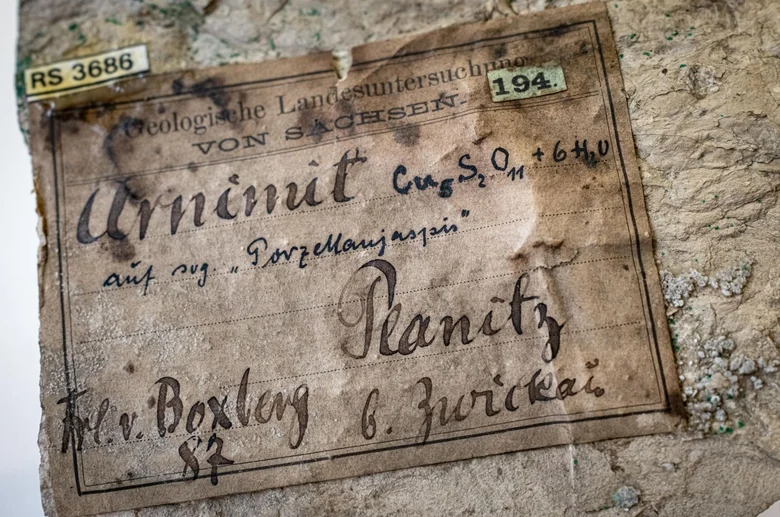 RS 3686
194.
Geologische Landesuntersuchung
VON SACHSEN-
Arnimit Cu₅S₂O₁₁ + 6 H₂O
auf sog. „Porzellanjaspis"
Planitz
Frl. v. Boxberg b. Zwickau
87